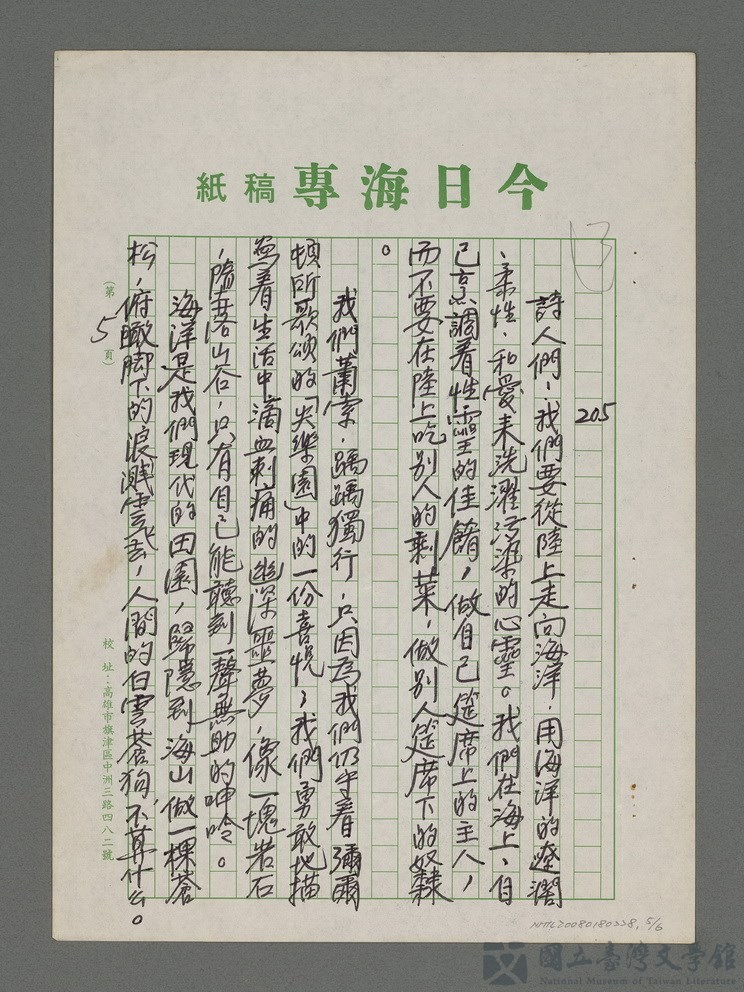 今日海專稿紙
205
詩人們，我們要從陸上走向海洋，用海洋的遼濶
、柔性、和愛來洗濯污染的心靈。我們在海上、自
己烹調着性靈的佳餚，做自己筵席上的主人，
而不要在陸上吃別人的剩菜，做別人筵席下的奴隸
。
我們蕭索，踽踽獨行，只因為我們仍守着彌爾
頓所歌頌的「失樂園」中的一份喜悅，我們勇敢地描
寫着生活中滴血刺痛的幽深噩夢，像一塊岩石
，隋落山谷，只有自己能聽到一聲無助的呻吟。
海洋是我們現代的田園，歸隱到海山做一棵蒼
松，俯瞰脚下的浪濺雲飛，人間的白雲蒼狗不算什么。
（第5頁）
校址：高雄市旗津區中洲三路四八二號
NMTL20080180328, 5/6
國立臺灣文學館
National Museum of Taiwan Literature